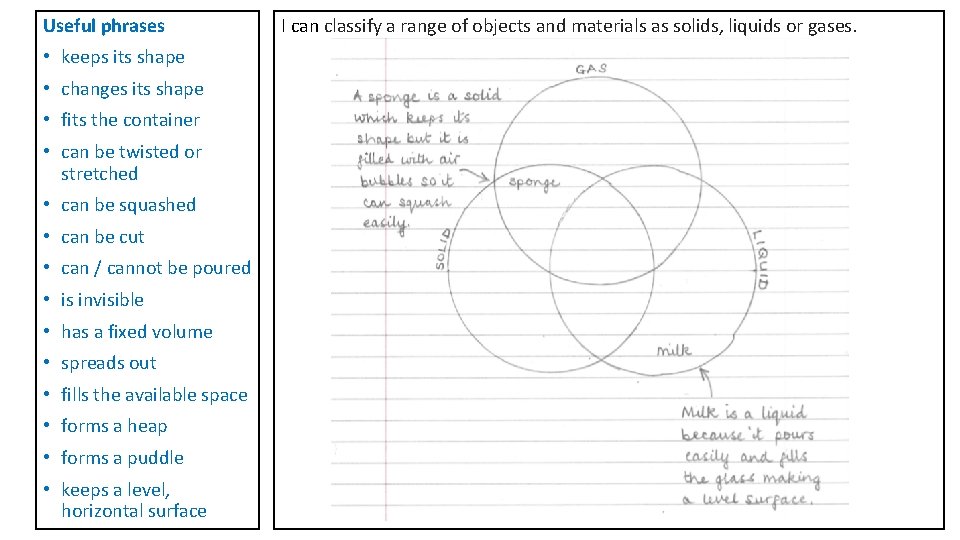 Useful phrases
• keeps its shape
• changes its shape
• fits the container
• can be twisted or
stretched
• can be squashed
• can be cut
• can / cannot be poured
• is invisible
• has a fixed volume
• spreads out
• fills the available space
• forms a heap
• forms a puddle
• keeps a level,
horizontal surface
I can classify a range of objects and materials as solids, liquids or gases.
GAS
A sponge is a solid
which keeps it's
shape but it is
filled with air
bubbles so it
can squash
easily.
sponge
SOLID
LIQUID
milk
Milk is a liquid
because it pours
easily and fills
the glass making
a level surface.